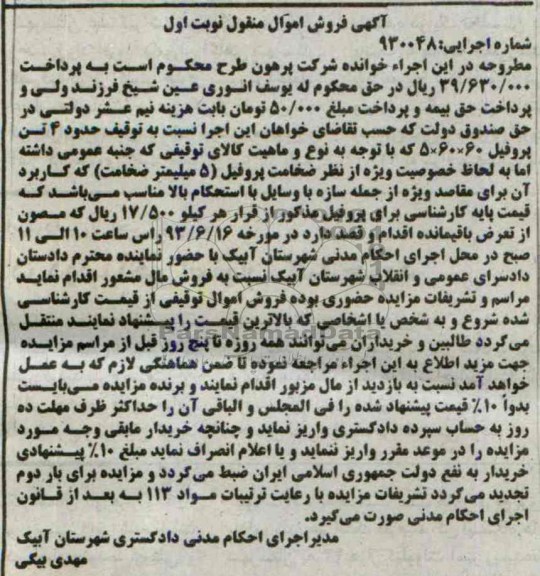 آگهی فروش اموال منقول نوبت اول
شماره اجرایی: ۹۳۰۰۴۸
مطروحه در این اجراء خوانده شرکت پرهون طرح محکوم است به پرداخت
۳۹/۶۳۰/۰۰۰ ریال در حق محکوم له یوسف انوری عین شیخ فرزند ولی و
پرداخت حق بیمه و پرداخت مبلغ ۵۰/۰۰۰ تومان بابت هزینه نیم عشر دولتی در
حق صندوق دولت که حسب تقاضای خواهان این اجرا نسبت به توقیف حدود ۴ تن
پروفیل ۶۰×۶۰×۵ که با توجه به نوع و ماهیت کالای توقیفی که جنبه عمومی داشته
اما به لحاظ خصوصیت ویژه از نظر ضخامت پروفیل (۵ میلیمتر ضخامت) که کاربرد
آن برای مقاصد ویژه از جمله سازه یا وسایل با استحکام بالا مناسب می‌باشد که
قیمت پایه کارشناسی برای پروفیل مذکور از قرار هر کیلو ۱۷/۵۰۰ ریال که مصون
از تعرض باقیمانده اقدام و قصد دارد در مورخه ۹۳/۶/۱۶ راس ساعت ۱۰ الی ۱۱
صبح در محل اجرای احکام مدنی شهرستان آبیک با حضور نماینده محترم دادستان
دادسرای عمومی و انقلاب شهرستان آبیک نسبت به فروش مال مشعور اقدام نماید
مراسم و تشریفات مزایده حضوری بوده فروش اموال توقیفی از قیمت کارشناسی
شده شروع و به شخص یا اشخاصی که بالاترین قیمت را پیشنهاد نمایند منتقل
می‌گردد طالبین و خریداران می‌توانند همه روزه تا پنج روز قبل از مراسم مزایده
جهت مزید اطلاع به این اجراء مراجعه نموده تا ضمن هماهنگی لازم که به عمل
خواهد آمد نسبت به بازدید از مال مزبور اقدام نمایند و برنده مزایده می‌بایست
بدواً ۱۰٪ قیمت پیشنهاد شده را فی المجلس و الباقی آن را حداکثر ظرف مهلت ده
روز به حساب سپرده دادگستری واریز نماید و چنانچه خریدار مابقی وجه مورد
مزایده را در موعد مقرر واریز ننماید و یا اعلام انصراف نماید مبلغ ۱۰٪ پیشنهادی
خریدار به نفع دولت جمهوری اسلامی ایران ضبط می‌گردد و مزایده برای بار دوم
تجدید می‌گردد تشریفات مزایده با رعایت ترتیبات مواد ۱۱۳ به بعد از قانون
اجرای احکام مدنی صورت می‌گیرد.
مدیر اجرای احکام مدنی دادگستری شهرستان آبیک
مهدی بیکی